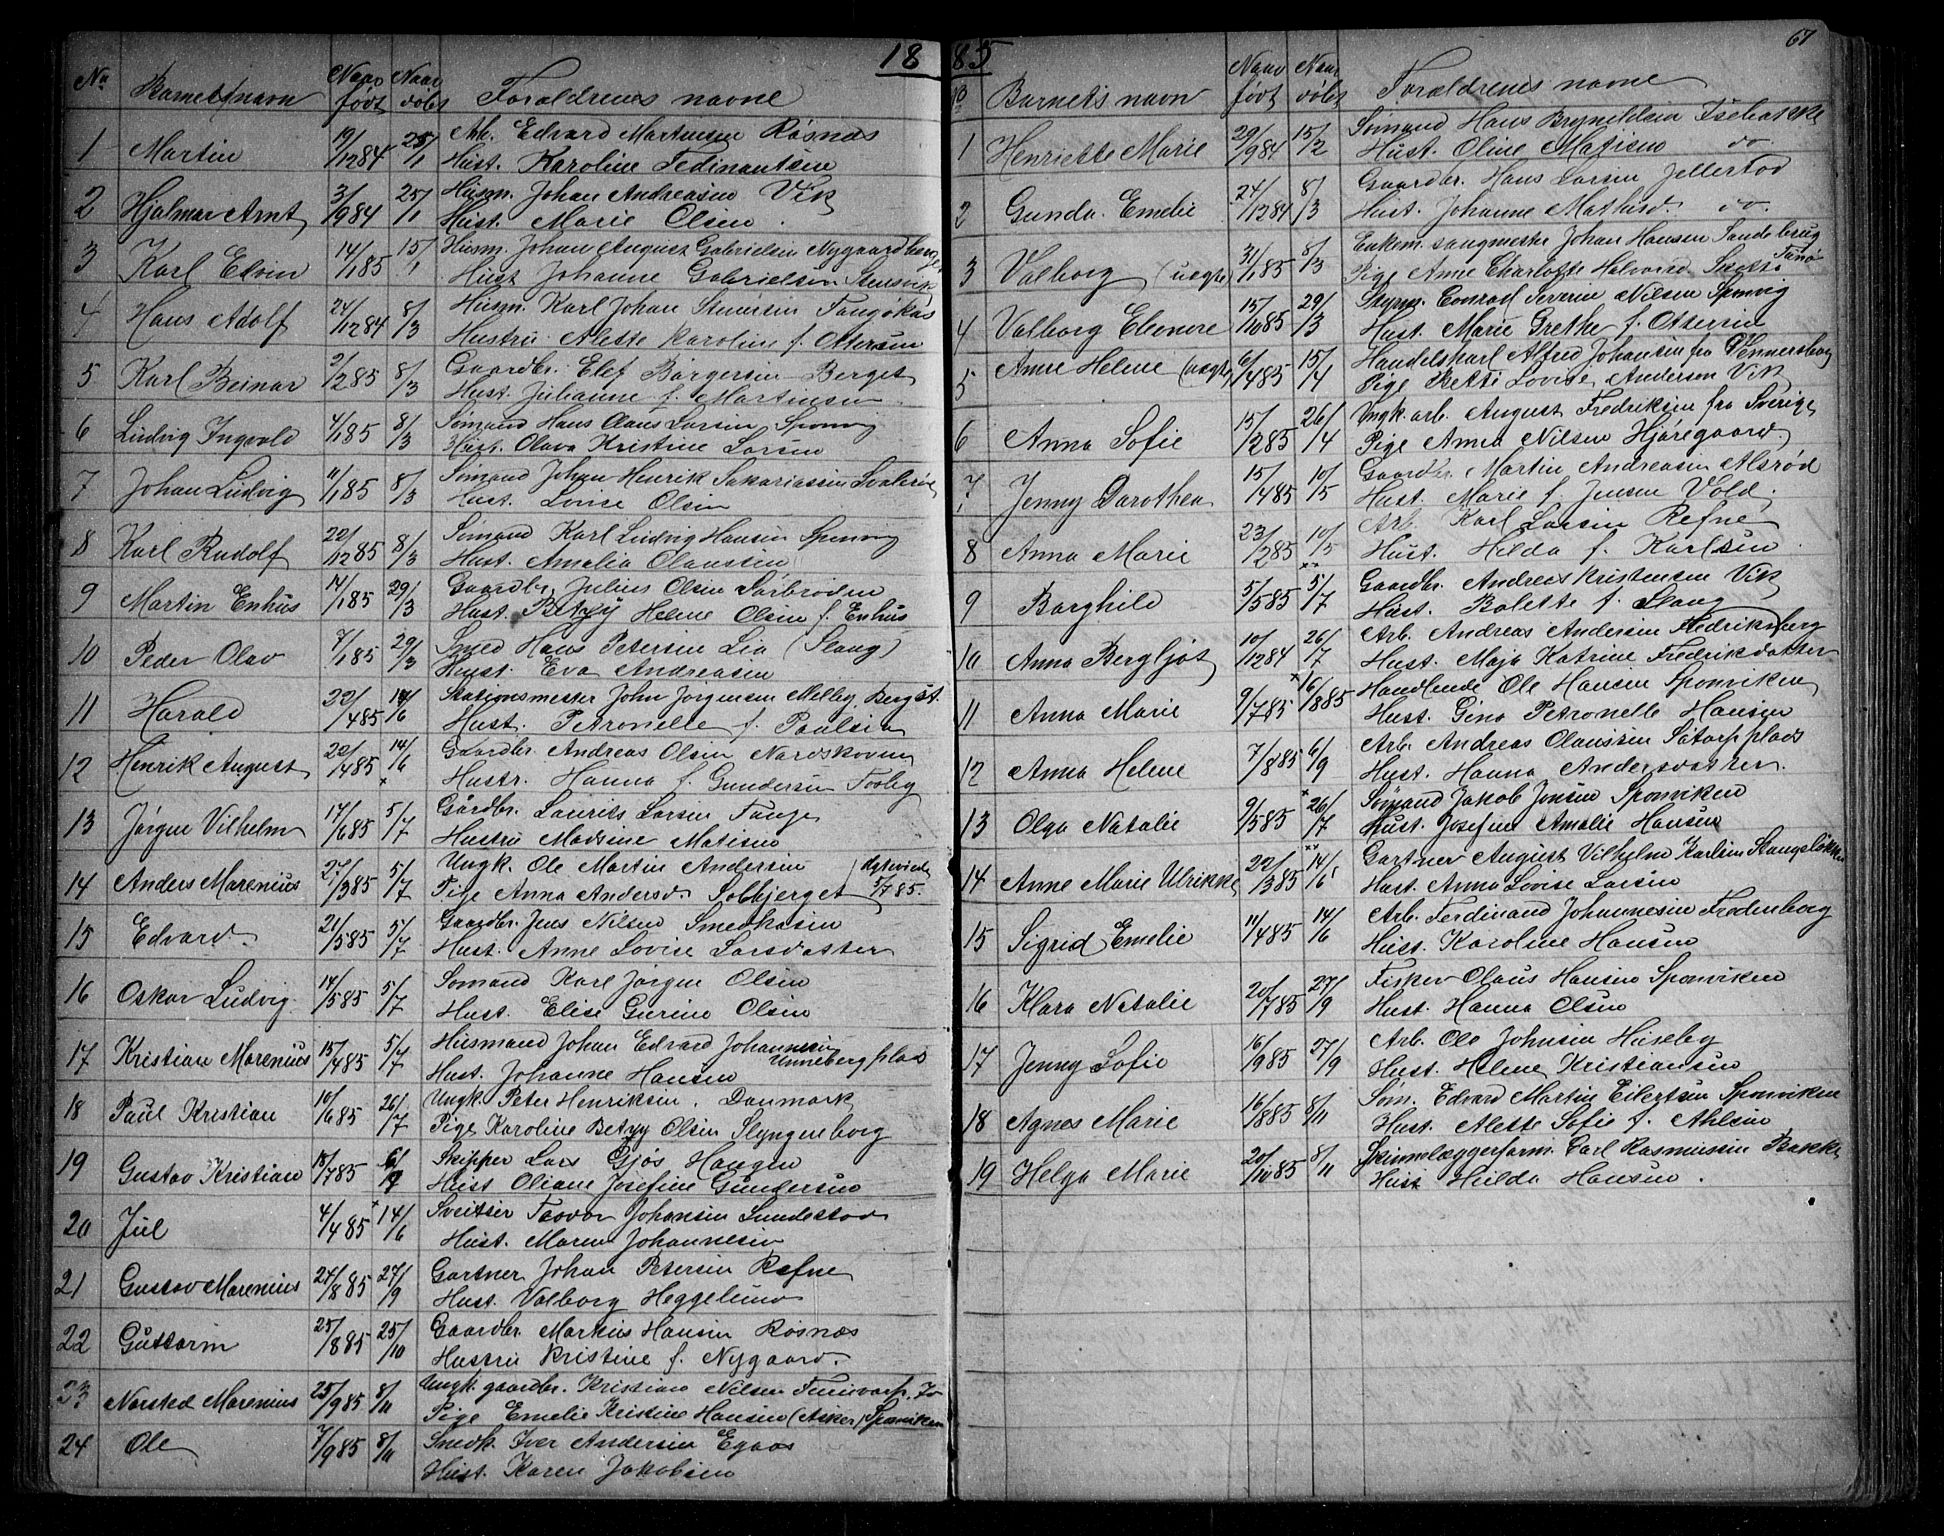 18
No Barnets navn Naar født Naar døbt Foraldrenes navne
1 Martin 19/12 84 25/1 Arb. Edvard Martinsen Røsnæs
Hust. Karoline Fedinantsen
2 Hjalmar Arnt 3/9 84 25/1 Husm. Johan Andreasen Vik
Hust. Marie Olsen
3 Karl Edvin 14/1 85 15/1 Husm. Johan August Gabrielsen
Hust Johanne Gabrielsen Stensvik
4 Hans Adolf 24/12 84 8/3 Husm. Karl Johan
Hustru Alette Karoline f. Ottersen
5 Karl Beinar 2/2 85 8/3 Gaardbr. Elef Børgersen Berget
Hust. Julianne f. Martinsen
6 Ludvig Ingvald 4/1 85 8/3 Sømand Hans Olaus Larsen Sponvig
Hust. Olava Kristine Larsen
7 Johan Ludvig 11/1 85 8/3 Sømand Johan Henrik Sakariassen
Hust. Lovise Olsen
8 Karl Rudolf 22/12 85 8/3 Sømand Karl Ludvig Hansen Sponvig
Hust. Amalia Olaussen
9 Martin Enhus 14/1 85 29/3 Gaardbr. Julius Olsen Sørbrøden
Hust. Betzy Helene Olsen f. Enhus
10 Peder Olav 7/1 85 29/3 Smed Hans Petersen Lia (Slang)
Hust. Eva Andreasen
11 Harald 22/4 85 14/6 Stationsmester John Jørgensen Melby, Berg st.
Hust. Petronelle f. Paulsen
12 Henrik August 22/4 85 14/6 Gaardbr. Andreas Olsen Nordskoven
Hustr. Hanna f. Gundersen Torbg
13 Jørgen Vilhelm 17/6 85 5/7 Gårdbr. Laurits Larsen Tange
Hustru Madsine Matisen
14 Anders Marenius 27/3 85 5/7 Ungk. Ole Martin Andersen
Pige Anna Andersd. Solbjerget 5/7 85.
15 Edvard. 21/5 85 5/7 Gaardbr. Jens Nilsen Smedkasen
Hust. Anne Lovise Larsdatter
16 Oskar Ludvig. 14/5 85 5/7 Sømand Karl Jørgen Olsen
Hust. Elise Gurine Olsen
17 Kristian Marenius 15/4 85 5/7 Husmand Johan Edvard Johannesen Unneberg plads
Hust. Johanne Hansen
18 Paul Kristian 10/6 85 26/7 Ungk. Peter Henriksen. Danmark
Pige Karoline Betzy Olsen Slyngenborg
19 Gustav Kristian 15/7 85 6/9 Skipper Lars Gjøs Haugen
Hust Oliane Josefine Gundersen
20 Jul 4/4 85 14/6 Sveitser Teodor Johansen Sundestod
Hust. Maren Johannesen
21 Gustav Marenius 24/8 85 27/9 Gartner Johan Petersen Refne
Hust. Valborg Heggelund
22 Guttorm 25/8 85 25/10 Gaardbr. Markus Hansen Røsnæs
Hustru Kristine f. Nygaard.
23 Narsted Marenius 25/9 85 8/11 Ungk. gaardbr. Kristian Nilsen
Pige Emelie Kristine Hansen (Asker) Sponviken
24 Ole 7/9 85 8/11 Smedk. Iver Andersen
Hust. Karen Jakobsen
85
67
No Barnets navn Naar født Naar døbt Forældrenes navne
1 Henriette Marie 29/9 84 15/2 Sømand Hans Bryneldsen Isebakke
Hust. Oline Matisen do
2 Gunda Emelie 24/12 84 8/3 Gaardbr. Hans Larsen Jellestod
Hust. Johanne Mathisd. do.
3 Valborg (uegte) 31/1 85 8/3 Enkem. saugmester Johan Hansen
Pige Anne Charlotte Halvorsd.
4 Valborg Eleonore 15/10 85 29/3 Styrm. Conrad Severin Nilsen Sponvig
Hust. Marie Grethe f. Ottersen
5 Anne Helene (uegte) 6/4 85 15/4 Handelskarl Alfred Johansen fra Vennersborg
Pige Betti Lovise Andersen Vik
6 Anna Sofie 15/2 85 26/4 Ungk. arb. August Fredriksen fra Sverige
Pige Anna Nilsen Hjøregaard.
7 Jenny Dorothea 15/4 85 10/5 Gaardbr. Martin Andreasen Alsrød
Hust. Marie f. Jensen Vold.
8 Anna Marie 23/2 85 10/5 Arb. Karl Larsen Refne
Hust. Hilda f. Karlsen
9 Borghild 5/5 85 5/7 Gaardbr. Andreas Kristensen Vik
Hust. Bolette f. Slang
10 Anna Bergljot 10/12 84 26/7 Arb. Andreas Andersen Fredriksberg
Hust. Maja Katrine Fredriksdatter
11 Anna Marie 9/7 85 16/8 85 Handlende Ole Hansen Sponviken
Hust. Gina Petronelle Hansen
12 Anna Helene 7/8 85 6/9 Arb. Andreas Olaussen Sotorp plads
Hust. Hanna Andersdatter.
13 Olga Natalie 9/5 85 26/7 Sømand Jakob Jensen Sponviken
Hust. Josefine Amalie Hansen
14 Anne Marie Ulrikke 22/3 85 14/5 Gartner August Vilhelm Karlsen Stangeløkken
Hust. Anna Lovise Larsen
15 Sigrid Emelie 11/4 85 14/6 Arb. Ferdinand Johannesen Fredenborg
Hust. Karoline Hansen
16 Klara Natalie 20/7 85 27/9 Fisker Olaus Hansen Sponviken
Hust. Hanna Olsen
17 Jenny Sofie 16/9 85 27/9 Arb. Ole Johnsen Huseby
Hust. Helene Kristiansen
18 Agnes Marie 16/8 85 8/11 Søm. Edvard Martin Eilertsen Sponviken
Hust. Alette Sofie f. Ahlsen
19 Helga Marie 20/10 85 8/11 Carl Rasmussen Bakke
Hust Hulda Hansen.